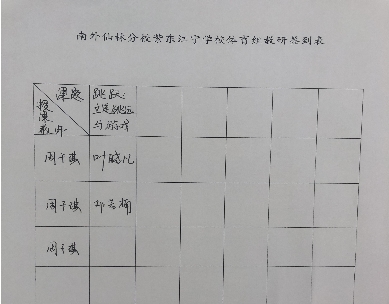 南外仙林分校紫东江宁学校体育组教研签到表
课题
授课教师
跳跃:
立定跳远
与游戏
周子琪
周子琪
周子琪